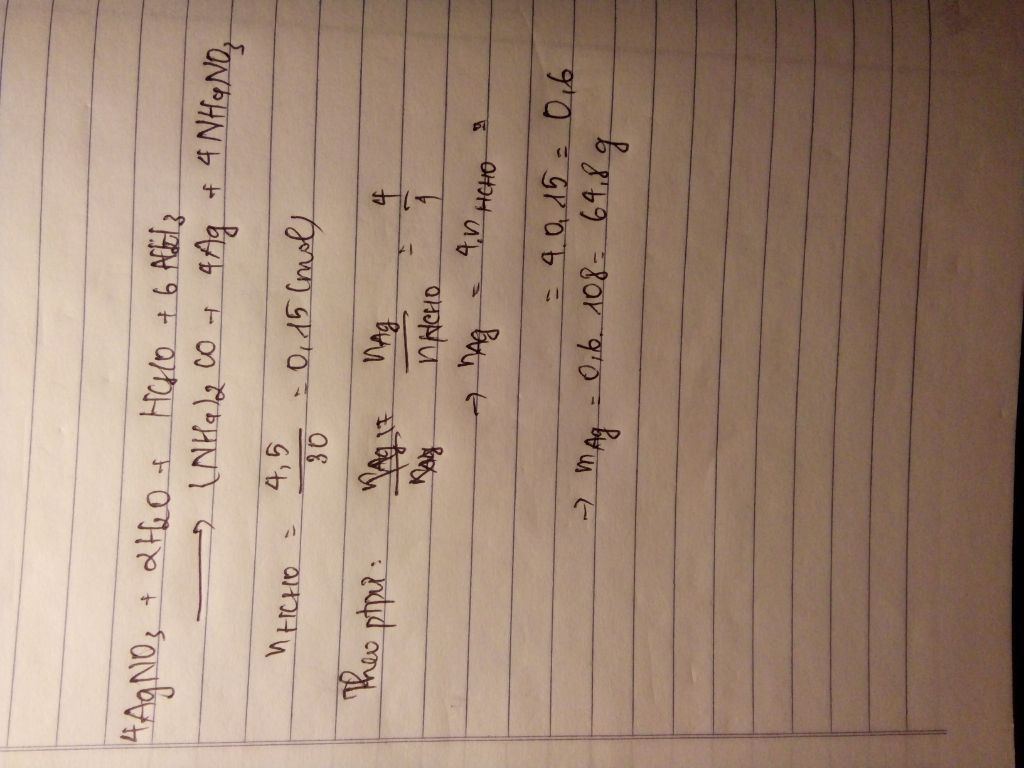 4AgNO3 + 2H2O + HCHO + 6 NH3
→ (NH4)2 CO + 4Ag + 4NH4NO3
nHCHO = 4,5/30 = 0,15 (mol)
Theo ptpư: nAg/nHCHO = 4/1
→ nAg = 4.nHCHO
= 4.0,15 = 0,6
→ mAg = 0,6. 108 = 64,8 g